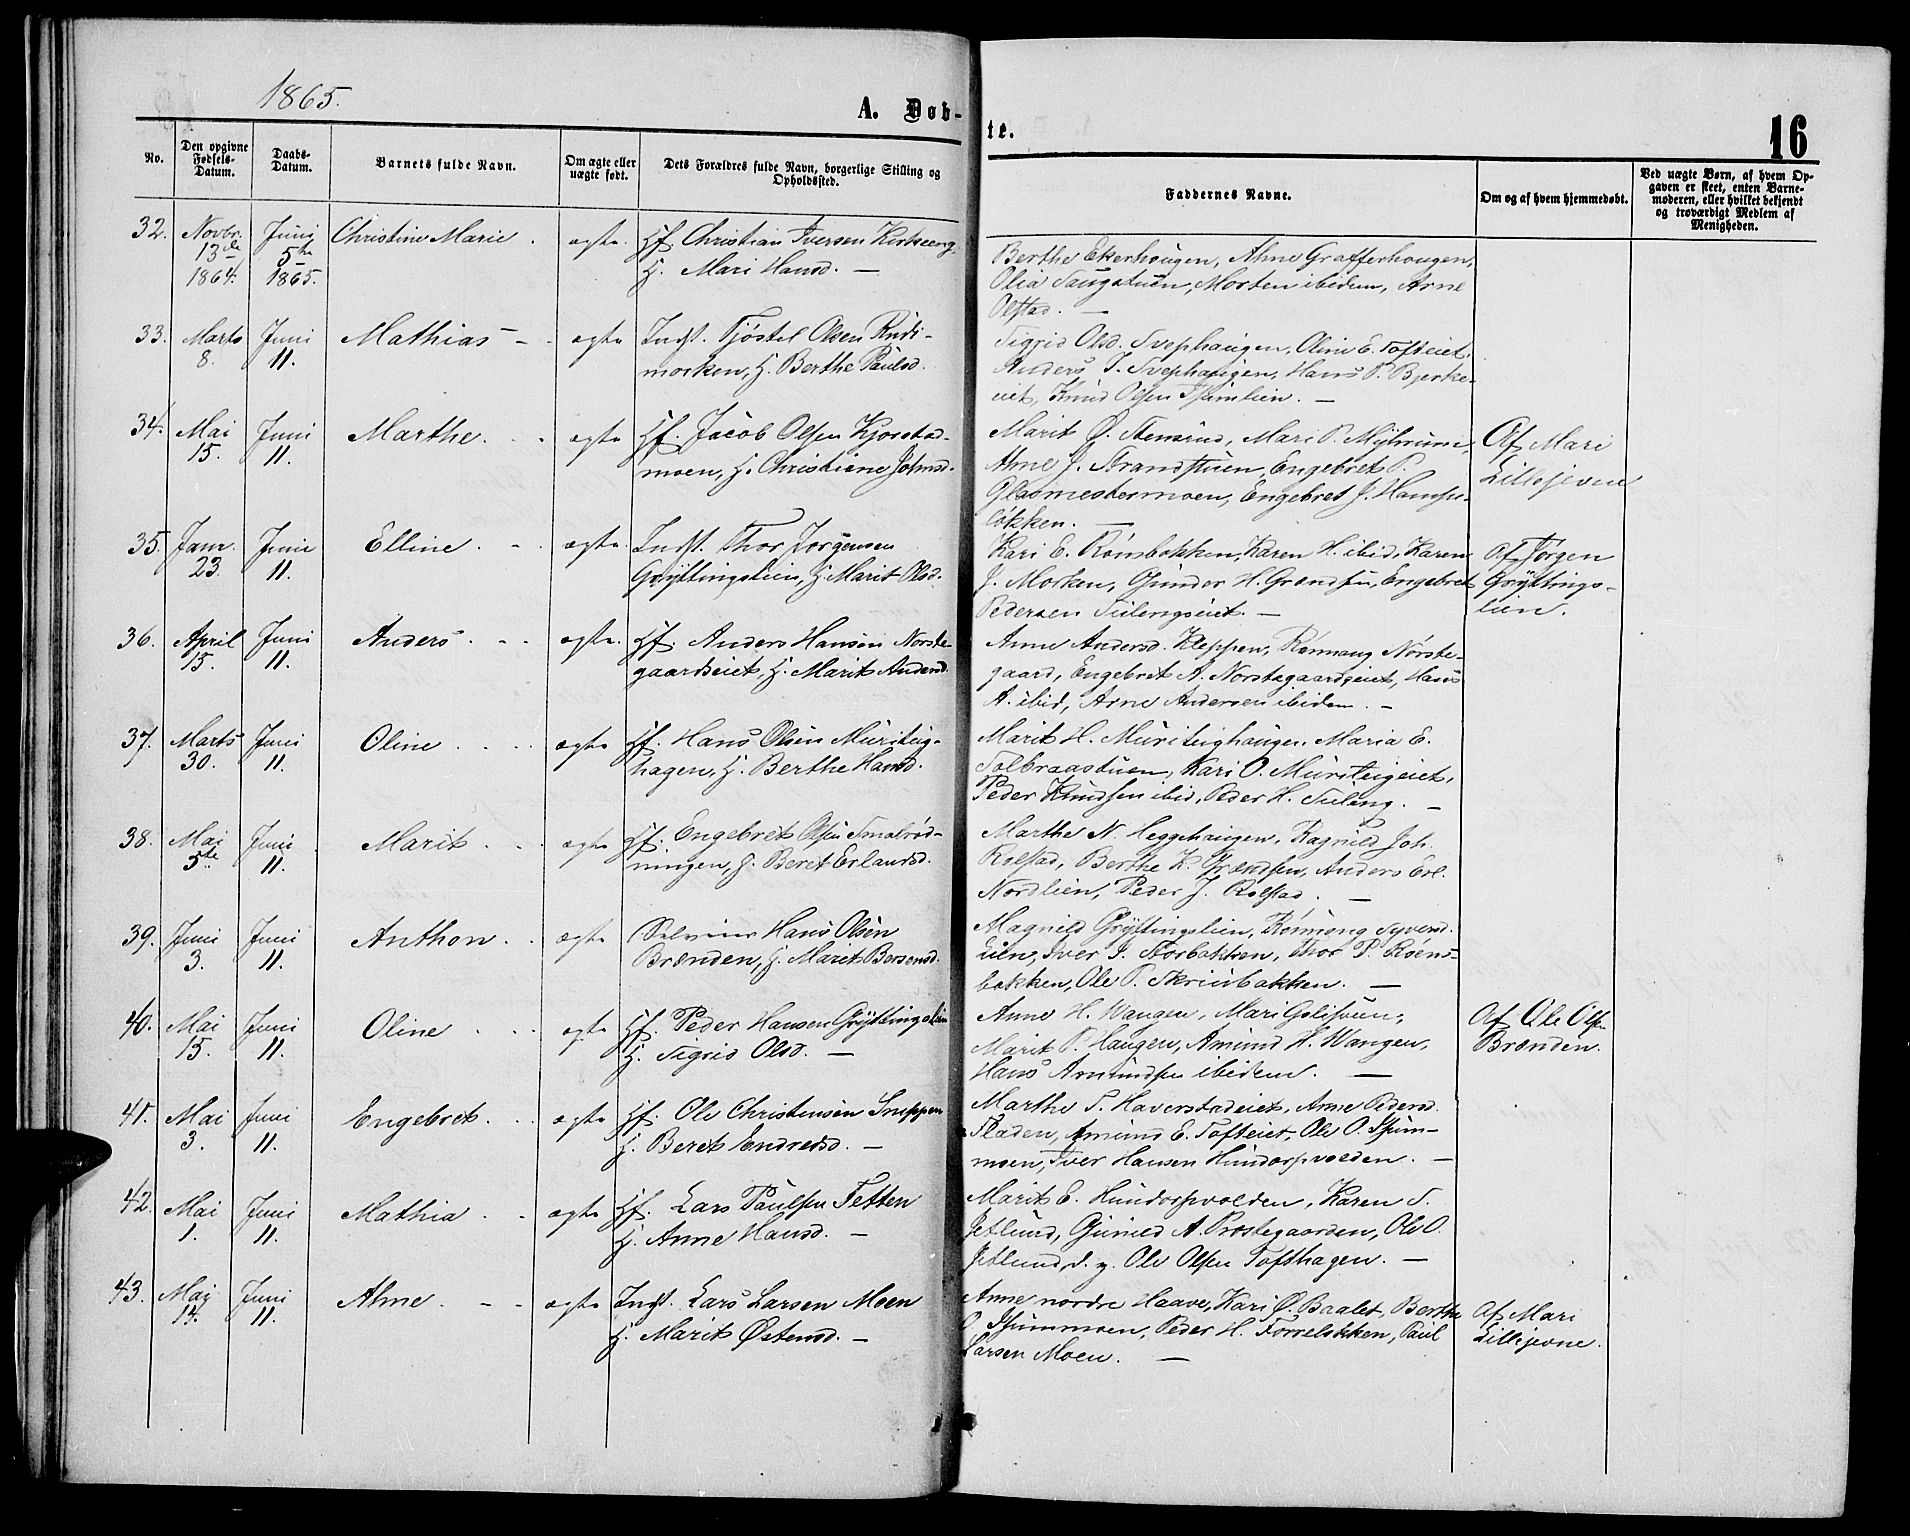 1865.
A. Døb-
te.
16
No.
Den opgivne Fødsels-Datum.
Daabs-Datum.
Barnets fulde Navn.
Om ægte eller uægte født.
Dets Forældres fulde Navn, borgerlige Stilling og Opholdssted.
Faddernes Navne.
Om og af hvem hjemmedøbt.
Ved uægte Børn, af hvem Opgaven er skeet, enten Barnemoderen, eller hvilket bekjendt og troværdigt Medlem af Menigheden.
32. Novbr. 13de 1864. Juni 5te 1865. Christine Marie. ægte. Hf. Christian Iversen Kirkeeng,
H. Mari Hansd. —
Berthe Ekerhougen, Ahne Grafferhougen,
Olia Saugstuen, Morten ibidem, Arne
Olstad. —
33. Marts 8. Juni 11. Mathias — ægte Indst. Tjøstel Olsen Rudi-
morken, H. Berthe Paulsd.
Sigrid Olsd. Svephaugen, Oline E. Tofteiet,
Anders T. Svephaugen, Hans P. Bjerke-
eiet, Knud Olsen Thumlien. —
34. Mai 15. Juni 11. Marthe. ægte Hf. Jacob Olsen Kjorstad-
moen, H. Christiane Johnsd.
Marit Ø. Stensrud, Mari P. Myhrum,
Ahne J. Strandstuen, Engebret P.
Glasmestermoen, Engebret J. Hampe-
løkken. —
Af Mari
Lillejevne
35. Janr. 23. Juni 11. Elline. ægte Indst. Thor Jørgensen
Gryttingslien, H. Marit Olsd.
Kari E. Rønsbakken, Karen H. ibid, Karen
J. Morken, Gunder H. Grændsen, Engebret
Pedersen Tulengseiet. —
Af Jørgen
Gryttings-
lien.
36. April 15. Juni 11. Anders. ægte. Hf. Anders Hansen Norste-
gaardseiet, H. Marit Andersd.
Anne Andersd. Kleppen, Rønnaug Nørste-
gaard, Engebret A. Norstegaardseiet, Hans
A. ibid, Arne Andersen ibidem. —
37. Marts 30. Juni 11. Oline. ægte Hf. Hans Olsen Muriteig-
hagen, H. Berthe Hansd.
Marit H. Muriteighaugen, Maria E.
Solbraastuen, Kari O. Muriteigeiet,
Peder Knudsen ibid, Peder H. Tuleng. —
38. Mai 5te Juni 11. Marit. ægte Hf. Engebret Olsen Smalrød-
ningen, H. Beret Erlandsd.
Marthe N. Heggehaugen, Ragnild Joh.
Rolstad, Berthe K. Grændsen, Anders Erl.
Nordlien, Peder J. Rolstad. —
39. Juni 3. Juni 11. Anthon. ægte Selveier Hans Olsen
Brænden, H. Marit Børsensd.
Magnild Gryttingslien, Rønnong Syversd.
Lien, Iver J. Storbakken, Thor P. Røens-
bakken, Ole P. Skrinbakken. —
40. Mai 15. Juni 11. Oline ægte Hf. Peder Hansen Gryttingslien
H. Sigrid Olsd. —
Anne H. Wangen, Mari Golistuen,
Marit P. Haugen, Amund H. Wangen,
Hans Amundsen ibidem. —
Af Ole Olsen
Brænden.
41. Mai 3. Juni 11. Engebret. ægte Hf. Ole Christensen Snuppen
H. Beret Endresd. —
Marthe T. Haverstadeiet, Anne Pedersd.
Fladen, Amund E. Tofteiet, Ole O. Thum-
moen, Iver Hansen Hundorpvolden. —
42. Mai 1. Juni 11. Mathia. ægte Hf. Lars Paulsen Tetten
H. Anne Hansd. —
Marit E. Hundorpvolden, Karen T.
Jetlund, Gunild A. Prøstegaarden, Ole O.
Jetlund, d. y. Ole Olsen Tofthagen. —
43. Mai 14. Juni 11. Ahne. ægte Indst. Lars Larsen Moen
H. Marit Østensd. —
Anne nordre Haave, Kari Ø. Baalet, Berthe
O. Thummoen, Peder H. Forreløkken, Paul
Larsen Moen. —
Af Mari
Lillejevne.